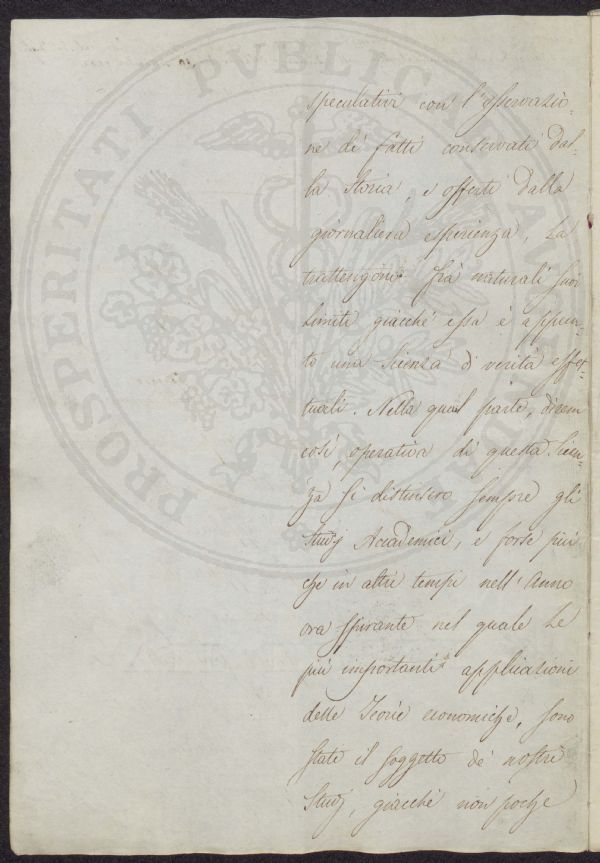 speculativi con l'osservazio-
ne di fatti conservati dal-
la storia, e offerti dalla
giornaliera esperienza, la
trattengono frà naturali suoi
limiti, giacché essa è appun-
to una scienza di verità effet-
tuali. Nella qual parte, direm
così, operativa di questa scien-
za si distinsero sempre gli
studj Accademici, e forse più
che in altri tempi nell'Anno
ora spirante nel quale le
più importanti applicazioni
delle Teorie economiche, sono
state il soggetto de' nostri
Studj, giacché non poche
PROSPERITATI PUBLICAE AUGENDAE